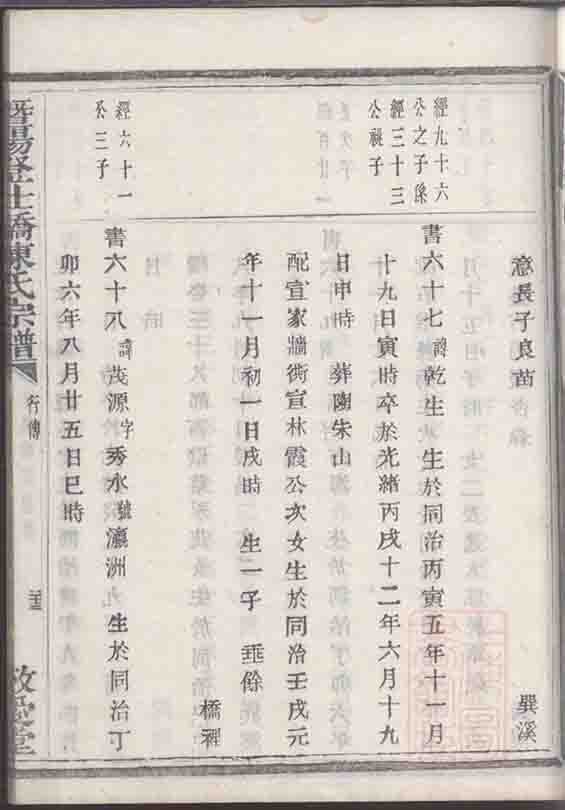 意長子良苗
巽溪
經九十六
公之子係
經三十三
公祧子
書六十七諱乾生 生於同治丙寅五年十一月
十九日寅時卒於光緒丙戌十二年六月十九
日申時 葬陶朱山
配宣家牆衖宣林霞公次女生於同治壬戌元
年十一月初一日戌時 生一子 垂餘
橋裡
經六十一
公三子
書六十八諱茂源字秀水號瀛洲 生於同治丁
卯六年八月廿五日巳時
暨陽登仕橋陳氏宗譜
行傳
敬愛堂